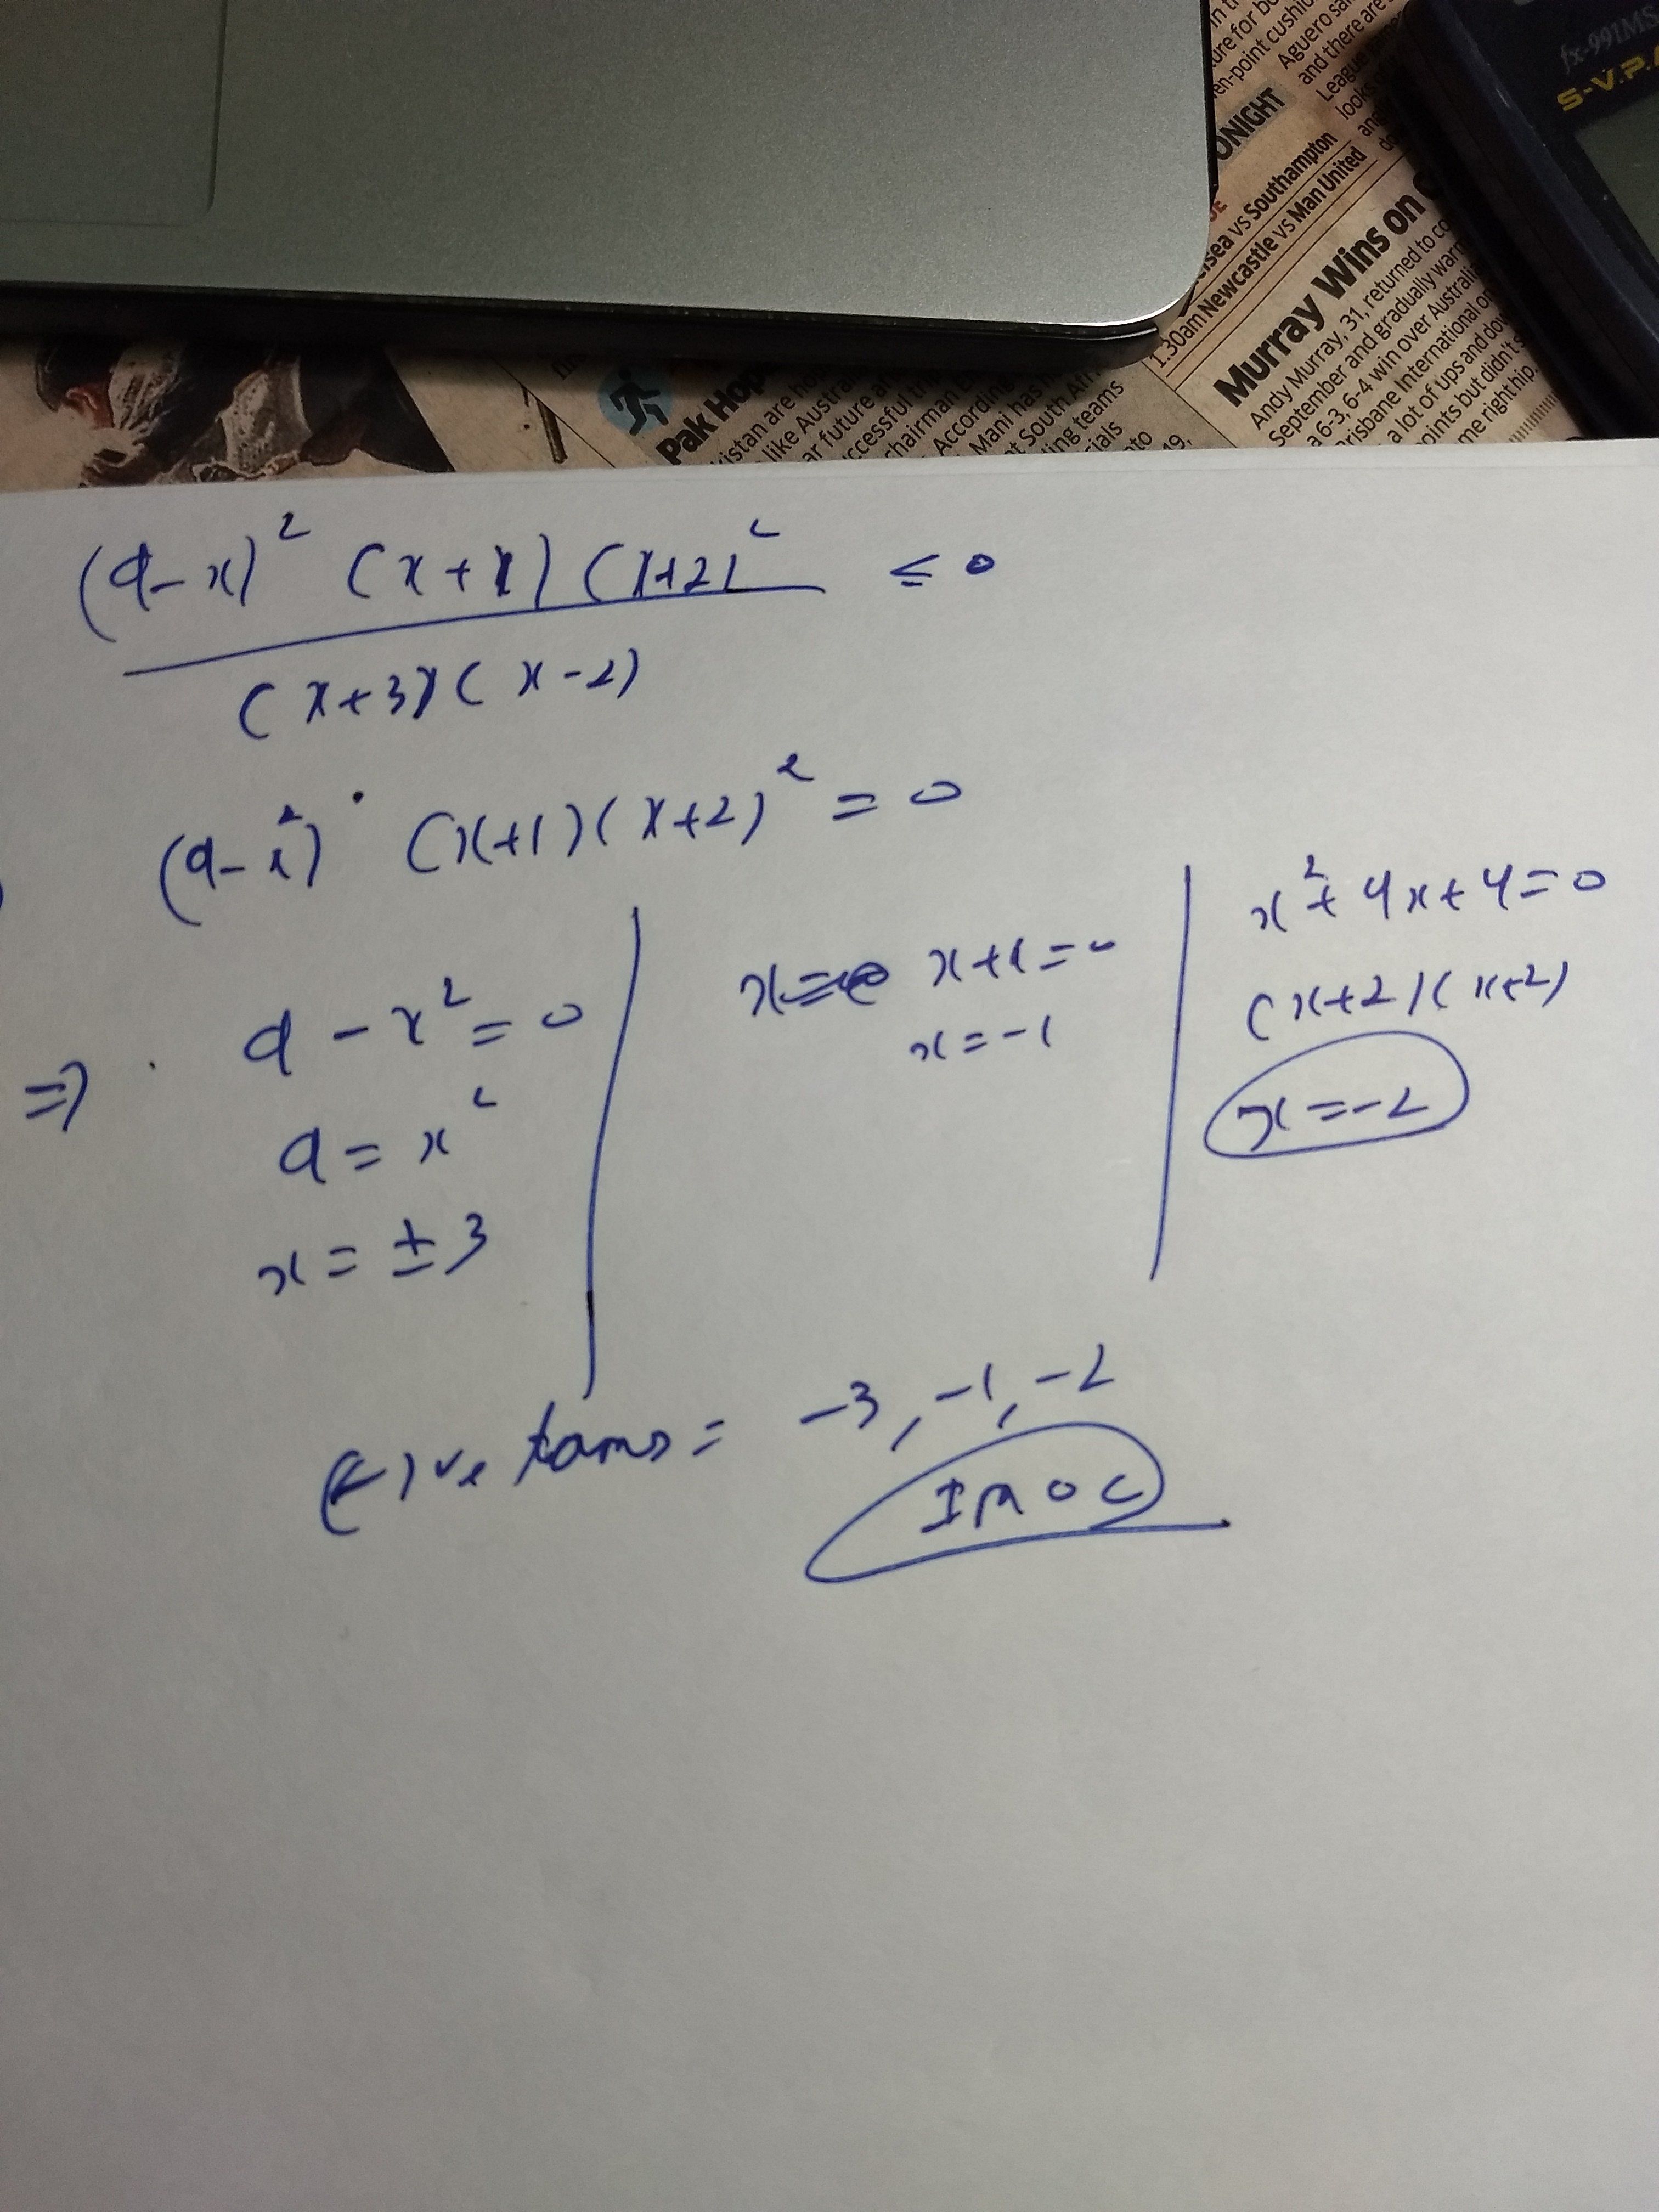 in th
ure for bo
en-point cushio
Aguero sa
and there are
League
looks
ONIGHT
UE
lsea vs Southampton
1.30am Newcastle vs Man United
Murray Wins on
Andy Murray, 31, returned to co
September and gradually warm
a 6-3, 6-4 win over Australi
risbane International on
a lot of ups and dow
points but didn't s
me right hip.
fx-991MS
S-V.P.A
Pak Hop
kistan are ho
like Austra
ar future a
ccessful tri
chairman E
According
Mani has
t South Afri
ing teams
cials
nto
19,
(9-x)² (x+1) (x+2)² ≤ 0
(x+3)(x-2)
(9-x²) (x+1)(x+2)² = 0
⇒ 9 - x² = 0
9 = x²
x = ± 3
x+1=0
x=-1
x²+4x+4=0
(x+2)(x+2)
x=-2
(-)ve tams = -3, -1, -2